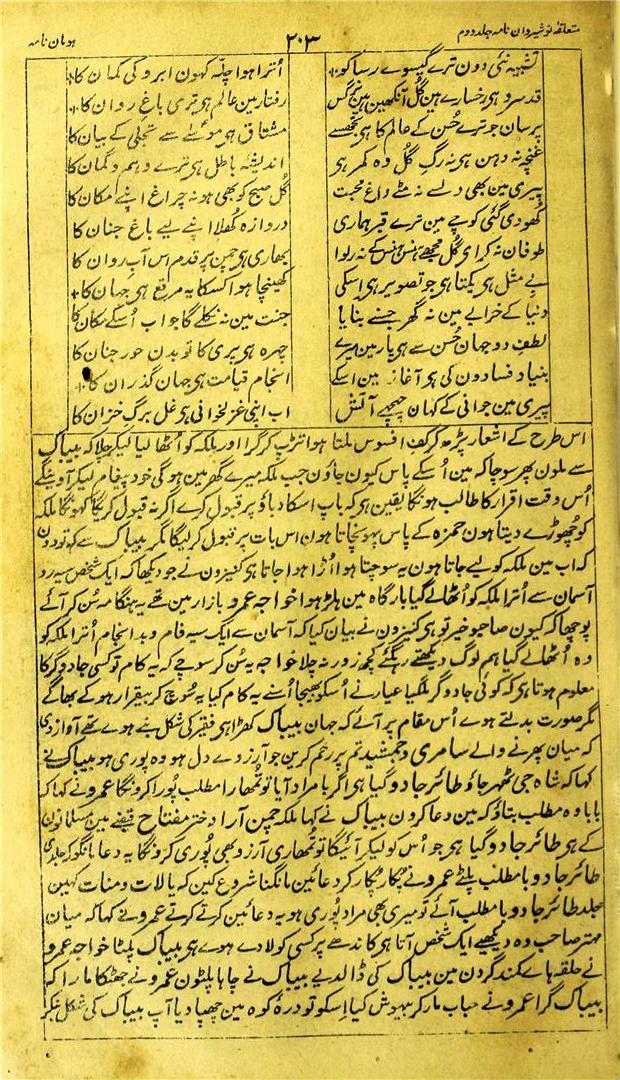 متعلقۂ نوشیروان نامہ جلد دوم ۲۰۳ ہومان نامہ
تشبیہ نئی دون ترے گیسوے رسا کو اُترا ہوا چلّہ کہون ابروکی کمان کا
قد سرو ہی رخسارے ہین گل آنکھین ہین نرگس رفتار مین عالم ہو تری باغ روان کا
پرسان جو ترے حُسن کے عالم کا ہو تجھسے مشتاق ہو موسٰے سے تجلی کے بیان کا
غنچہ نہ دہن ہی نہ رگِ گُل وہ کمر ہی اندیشۂ باطل ہی ترے وہم و گمان کا
پیری مین بھی دلسے نہ مٹے داغ محبت گُل صبح کو بھی ہو نہ چراغ اپنے مکان کا
کھودی گئی کوچے مین ترے قبر ہماری دروازہ کُھلا اپنے لیے باغ جنان کا
طوفان نہ کر ای گُل مجھے ہنس ہنس کے نہ رلوا بھاری ہی چمن پر قدم اس آب روان کا
بے مثل ہی یکتا ہی جو تصویر ہی اسکی کھینچا ہوا کسکا یہ مرقع ہی جہان کا
دنیا کے خرابے مین نہ گھر جسنے بنایا جنت مین نہ نکلے گا جواب اُسکے مکان کا
لطف دو جہان حُسن سے ہی یار مین میرے چہرہ ہی پری کا تو بدن حور جنان کا
بنیاد فسادون کی ہی آغاز مین اسکے انجام قیامت ہی جہان گذران کا
پیری مین جوانی کے کہان چہچہے آتش اب اپنی غزلخوانی ہی غل برگ خزان کا
اس طرح کے اشعار پڑھ کر کف افسوس ملتا ہوا تڑپ کر گرا اور ملکہ کو اُٹھا لیا لیکر چلا کہ بیباک
سے ملون پھر سوچا کہ مین اُسکے پاس کیون جاؤن جب ملکہ میرے گھر مین ہوگی خود پیغام لیکر آوینگے
اُس وقت اقرار کا طالب ہونگا یقین ہی کہ باپ اسکا دباؤ پر قبول کرے اگر نہ قبول کریگا کہونگا ملکہ
کو چھوڑے دیتا ہون حمزہ کے پاس پہونچاتا ہون اس بات پر قبول کر لیگا مگر بیباک سے کہتو دون
کہ اب مین ملکہ کو لیے جاتا ہون یہ سوچتا ہوا اُڑا ہوا جاتا ہی کنیزون نے جو دیکھا کہ ایک شخص سیہ رو
آسمان سے اُترا ملکہ کو اُٹھا لے گیا بارگاہ مین ہلڑ ہوا خواجہ عمرو بازار مین تھے یہ ہنگامہ سُن کر آئے
پوچھا کہ کیون صاحبو خیر تو ہی کنیزون نے بیان کیا کہ آسمان سے ایک سیہ فام و بد انجام اُترا ملکہ کو
وہ اُٹھا لے گیا ہم لوگ دیکھتے رہگئے کچھ زور نہ چلا خواجہ یہ سُن کر سوچے کہ یہ کام تو کسی جادوگر کا
معلوم ہوتا ہی کہ کوئی جادوگر ملگیا عیار نے اُسکو بھیجا اُسنے یہ کام کیا یہ سوچ کر بیقرار ہو کے بھاگے
مگر صورت بدلتے ہوے اُس مقام پر آئے کہ جہان بیباک کھڑا ہی فقیر کی شکل بنے ہوے تھے آواز دی
کہ میان پھرنے والے سامری و جمشید تم پر رحم کرین جو آرزوے دل ہو وہ پوری ہو بیباک نے
کہا کہ شاہ جی ٹھہر جاؤ طائر جادو گیا ہی اگر بامراد آیا تو تمھارا مطلب پورا کرونگا عمرو نے کہا کہ
بابا وہ مطلب بتاؤ کہ مین دعا کرون بیباک نے کہا ملکہ چمن آرا دختر مفتاح قبضے مین مسلمانون
کے ہی طائر جادو گیا ہی جو اُس کو لیکر آئیگا تو تمھاری آرزو بھی پوری کرونگا یہ دعا مانگو کہ جلدی
طائر جادو بامطلب پلٹے عمرو نے پُکار پُکار کر دعائین مانگنا شروع کین کہ یا لات و منات کہین
جلد طائر جادو بامطلب آئے تو میری بھی مراد پوری ہو یہ دعائین کرتے کرتے عمرو نے کہا کہ میان
مہتر صاحب وہ دیکھیے ایک شخص آتا ہی کاندھے پر کسی کو لادے ہوے ہی بیباک پلٹا خواجہ عمرو
نے حلقہ ہاے کمند گردن مین بیباک کی ڈالدیے بیباک نے چاہا پلٹون عمرو نے جھٹکا مارا کہ
بیباک گرا عمرو نے حباب مار کر بیہوش کیا اسکو تو درۂ کوہ مین چھپا دیا آپ بیباک کی شکل بنکر